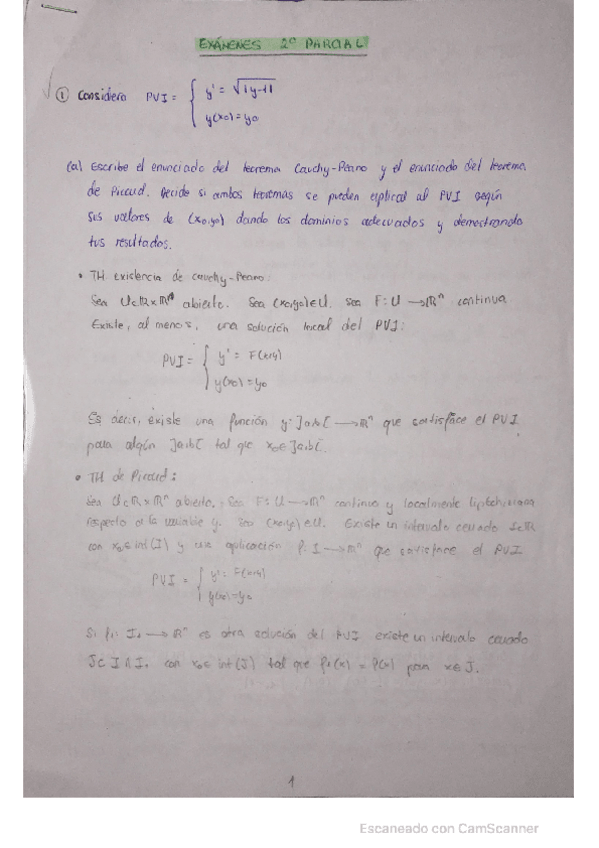 EXÁMENES 2º PARCIAL
① Considera PVI = { y' = √|y-1|
y(x0) = y0
(a) Escribe el enunciado del teorema Cauchy-Peano y el enunciado del teorema
de Picaud. Decide si ambos teoremas se pueden aplicar al PVI según
sus valores de (x0,y0) dando los dominios adecuados y demostrando
tus resultados.
• TH existencia de Cauchy-Peano:
Sea U⊂R×Rⁿ abierto. Sea (x0,y0)∈U. Sea F: U → Rⁿ continua
Existe, al menos, una solución local del PVI:
PVI = { y' = F(x,y)
y(x0) = y0
Es decir, existe una función y: ]a,b[ → Rⁿ que satisface el PVI
para algún ]a,b[ tal que x0∈]a,b[.
• TH de Picaud:
Sea U⊂R×Rⁿ abierto. Sea F: U → Rⁿ continua y localmente lipschitziana
respecto a la variable y. Sea (x0,y0)∈U. Existe un intervalo cerrado I⊂R
con x0∈int(I) y una aplicación φ: I → Rⁿ que satisface el PVI
PVI = { y' = F(x,y)
y(x0) = y0
Si φ1: I1 → Rⁿ es otra solución del PVI existe un intervalo cerrado
J⊂I∩I1 con x0∈int(J) tal que φ1(x) = φ(x) para x∈J.
1
Escaneado con CamScanner